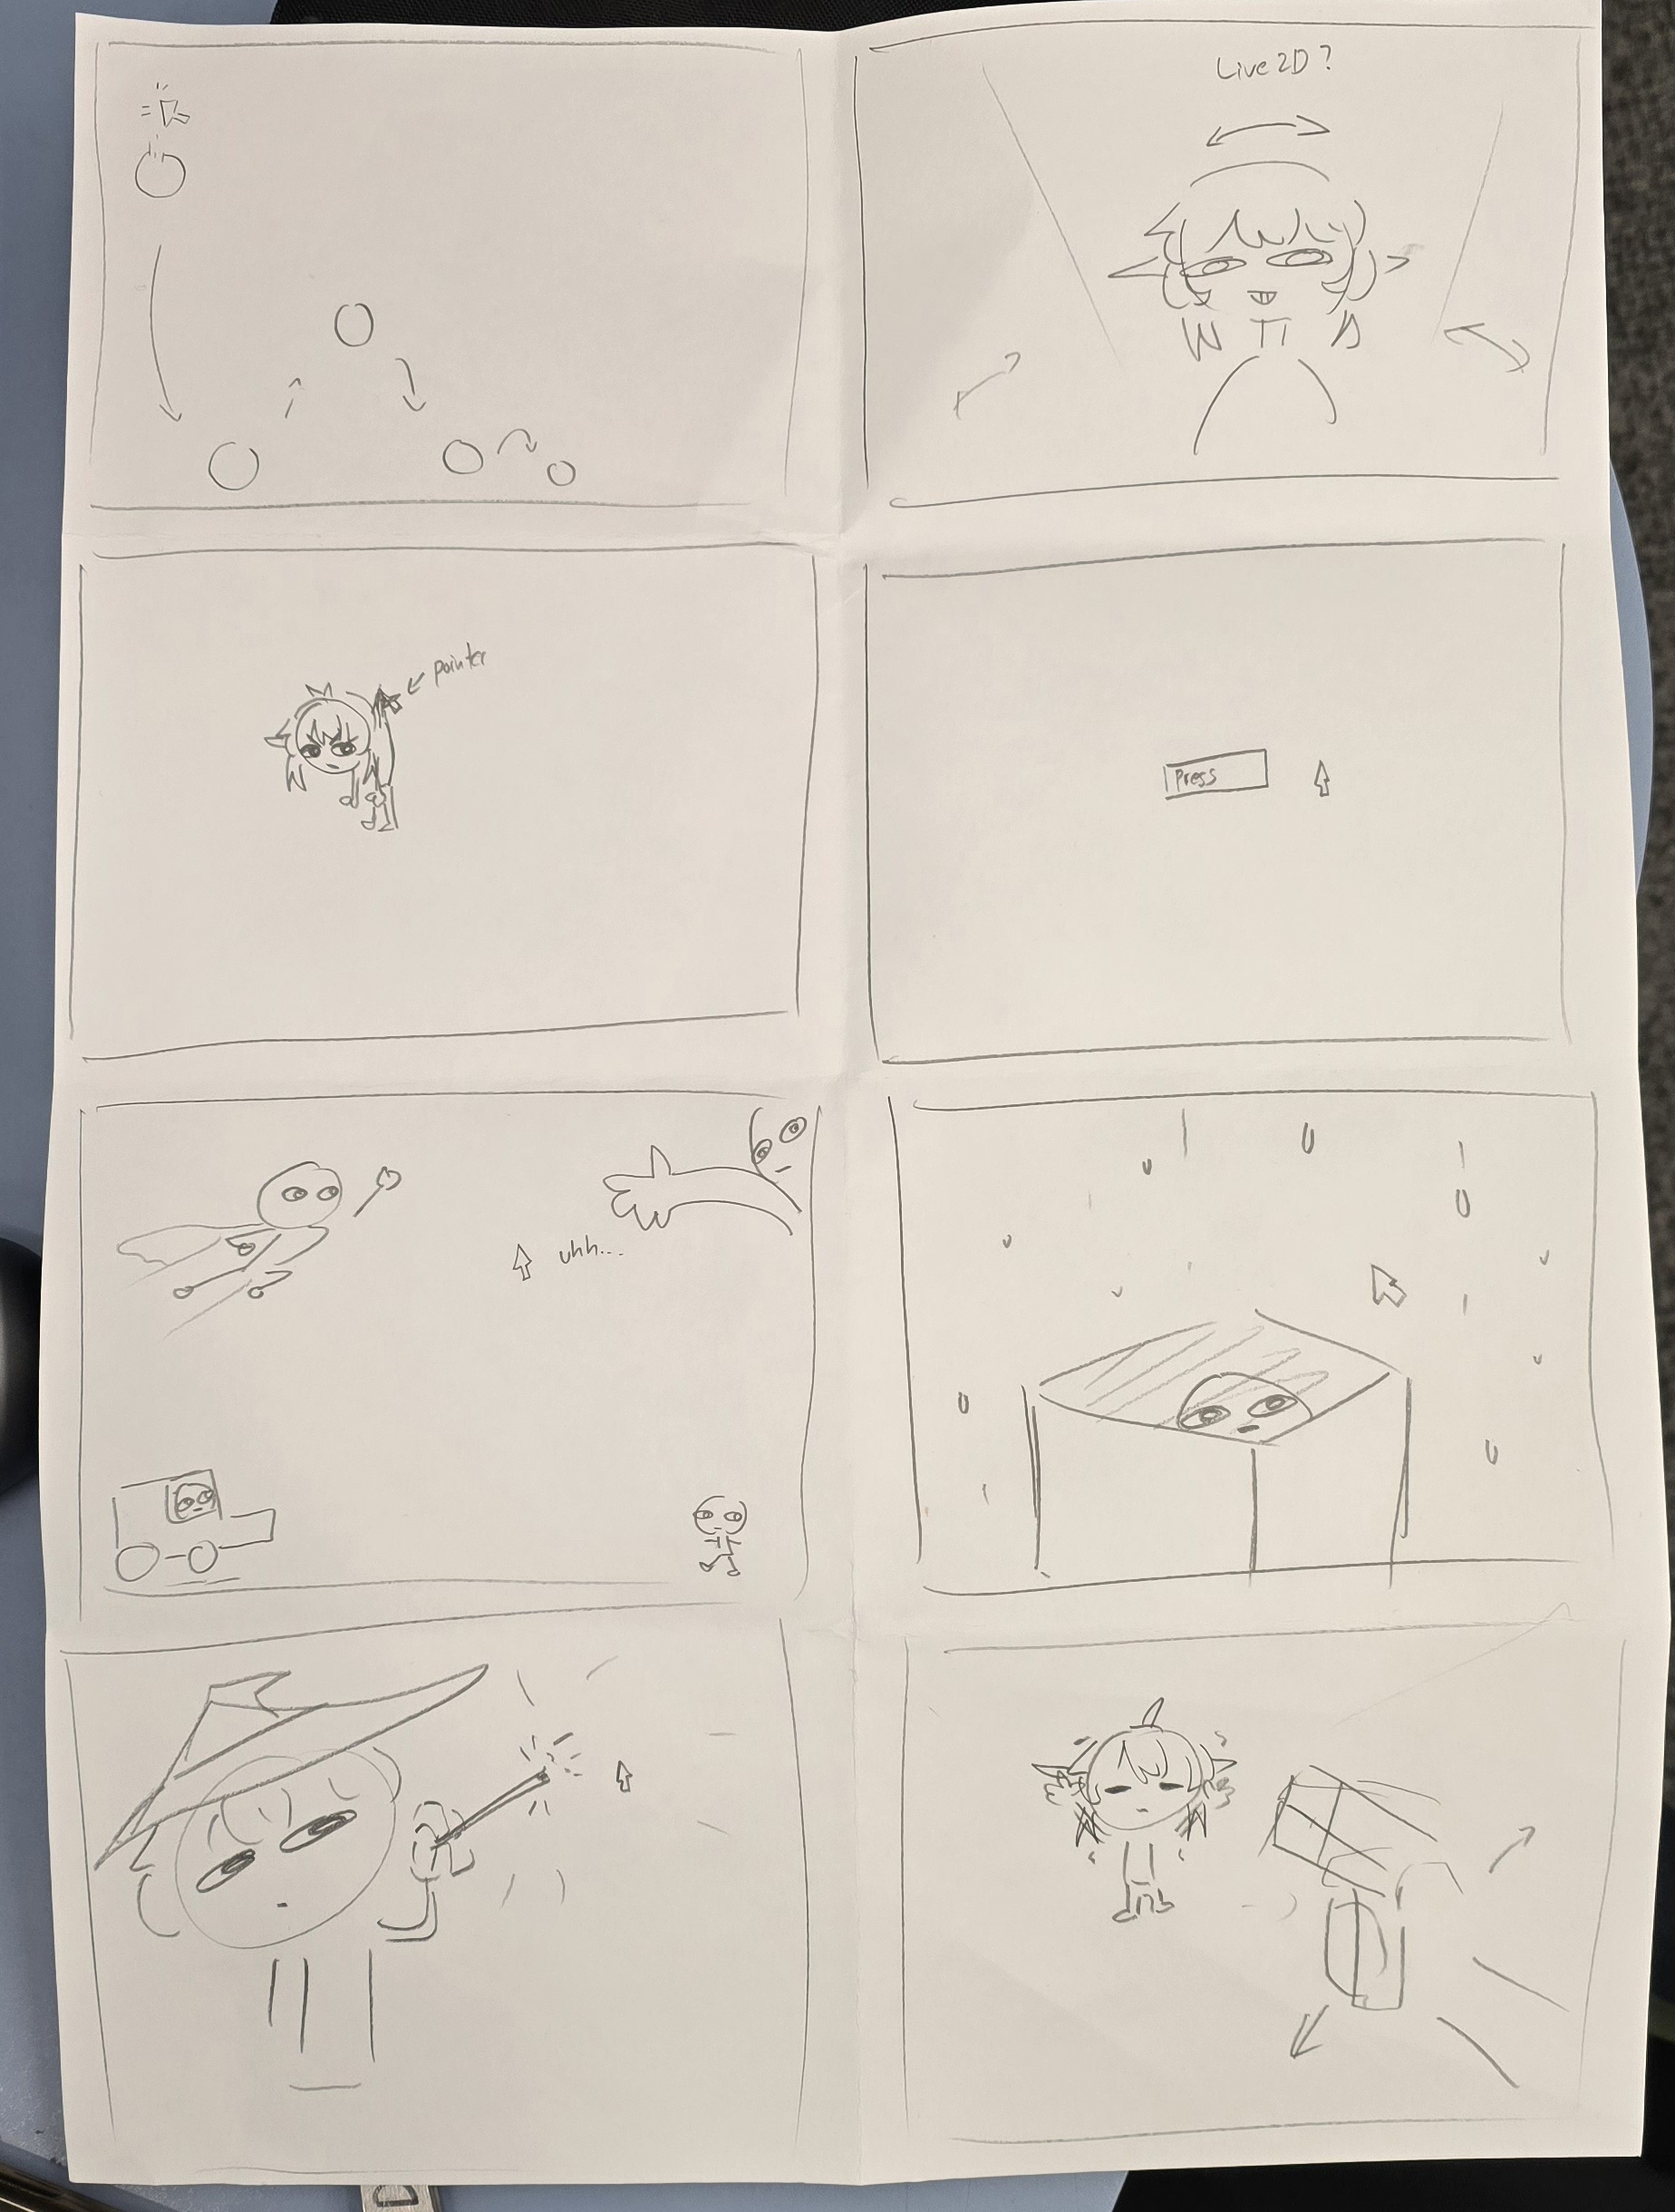 Live2D?
pointer
Press
uhh...
D